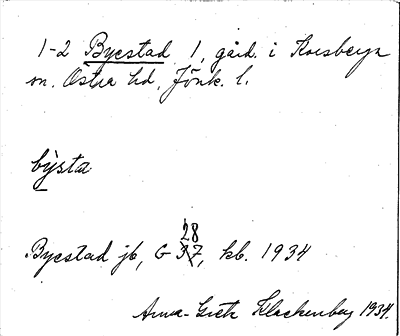 1-2 Byestad 1, gård. i Korsberga
sn. Östra hd, Jönk. l.
by̆sta
Byestad jb, G 28 37, kb. 1934
Anna-Greta Klackenberg 1934.